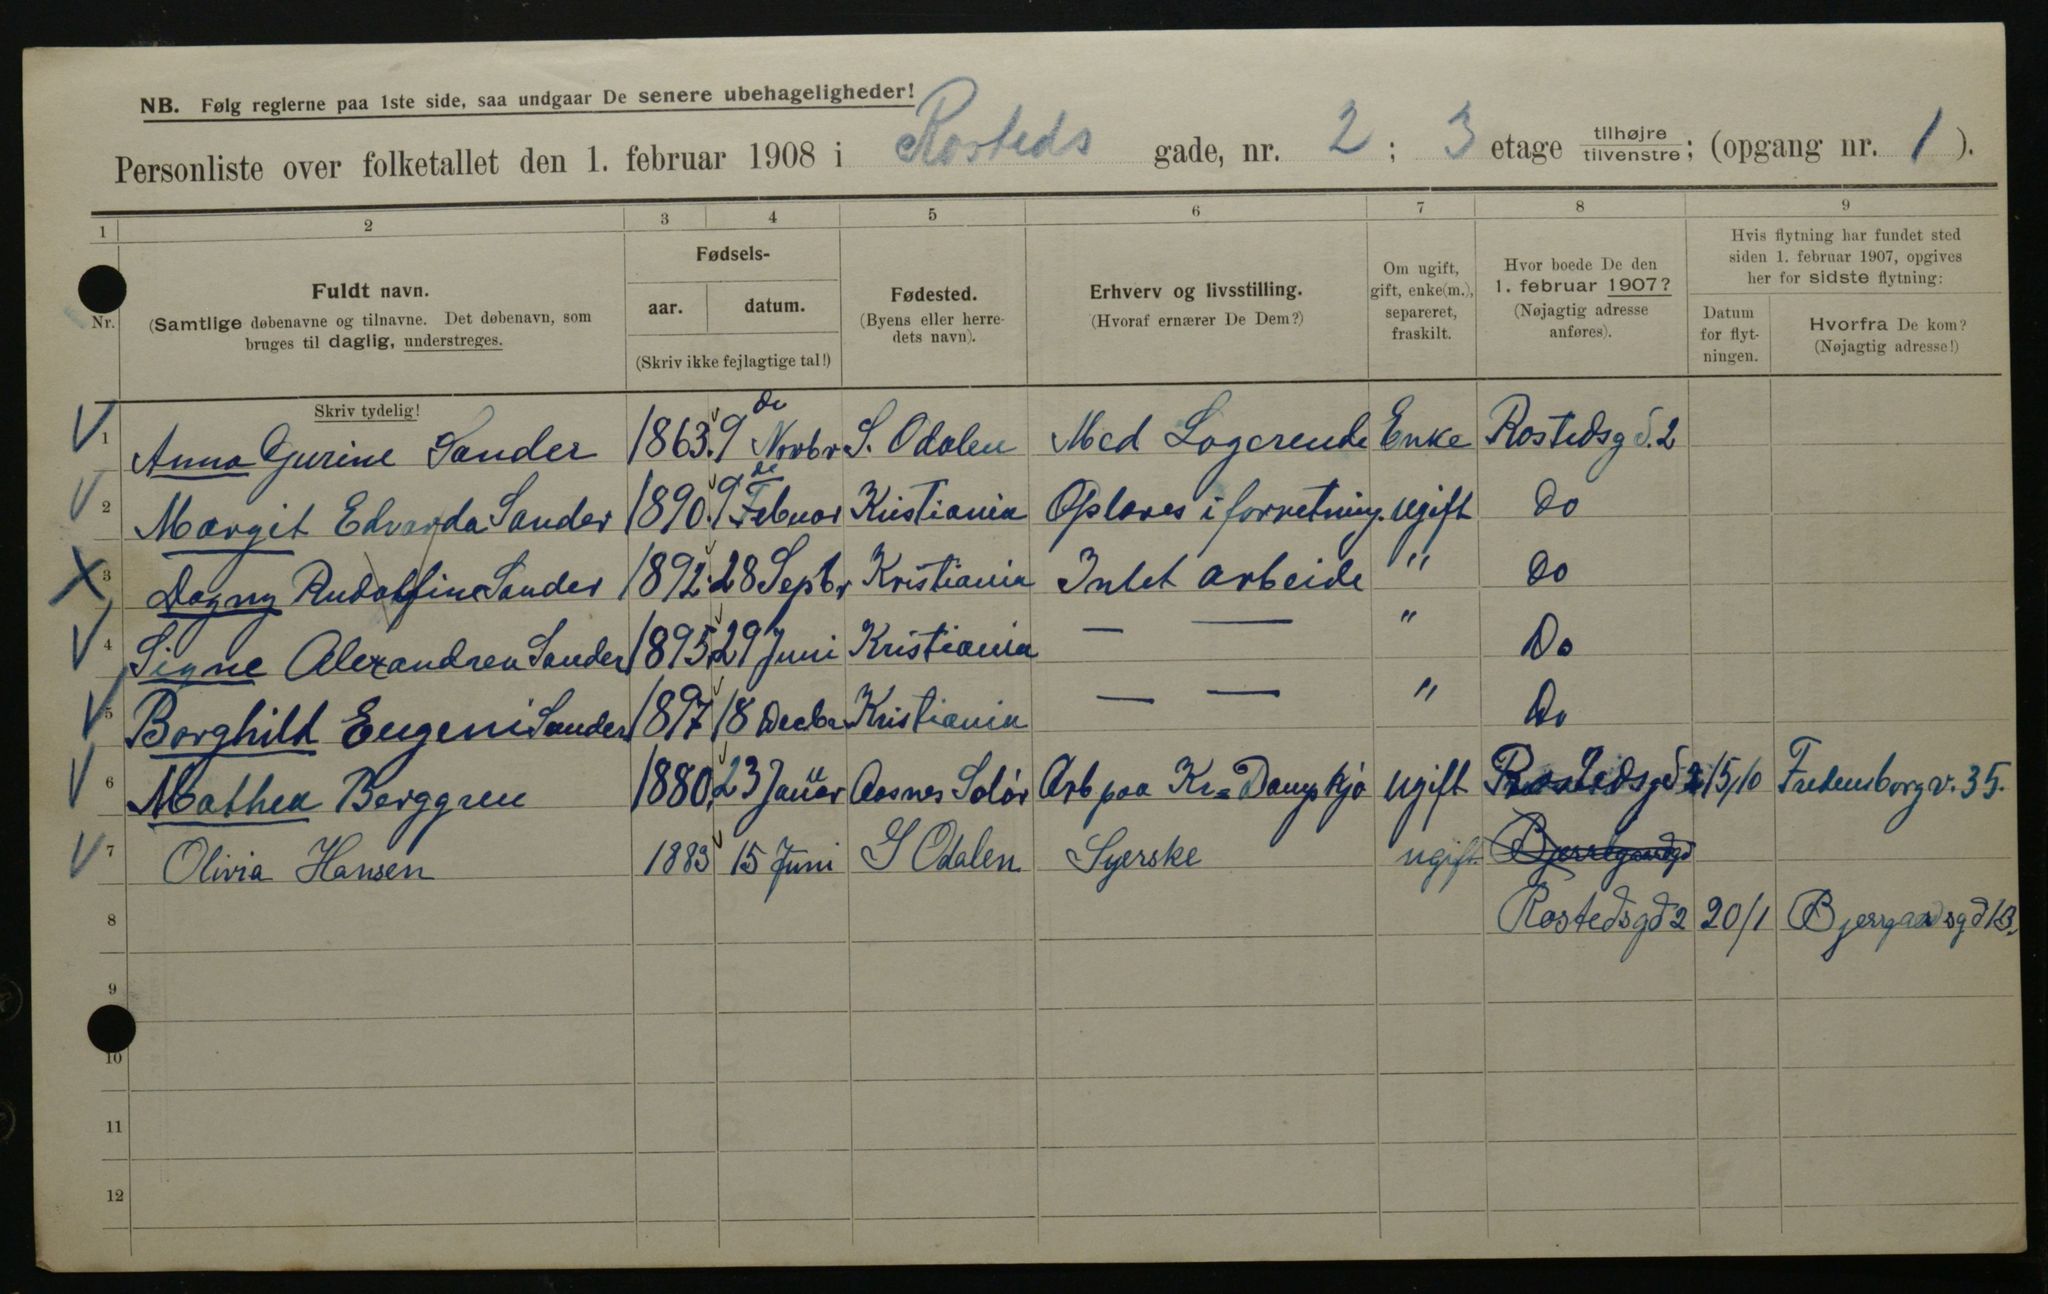 NB. Følg reglerne paa 1ste side, saa undgaar De senere ubehageligheder!
Personliste over folketallet den 1. februar 1908 i Rosteds gade, nr. 2; 3 etage tilhøjre tilvenstre; (opgang nr. 1).
1 2 3 4 5 6 7 8 9
Nr.
Fuldt navn.
(Samtlige døbenavne og tilnavne. Det døbenavn, som
bruges til daglig, understreges.
Skriv tydelig!
Fødsels-
aar. datum.
(Skriv ikke fejlagtige tal!)
Fødested.
(Byens eller herre-
dets navn).
Erhverv og livsstilling.
(Hvoraf ernærer De Dem?)
Om ugift,
gift, enke(m.),
separeret,
fraskilt.
Hvor boede De den
1. februar 1907?
(Nøjagtig adresse
anføres).
Hvis flytning har fundet sted
siden 1. februar 1907, opgives
her for sidste flytning:
Datum
for flyt-
ningen.
Hvorfra De kom?
(Nøjagtig adresse!)
1 Anna Gurine Sander 1863 9de Novbr S. Odalen Med Logerende Enke Rostedsgd. 2
2 Margit Edvarda Sander 1890 9de Febuar Kristiania Oplæres i forretning. ugift Do
3 Dagny Rudolfine Sander 1892 28 Septbr Kristiania Intet arbeide " Do
4 Signe Alexandrea Sander 1895 29 Juni Kristiania — — " Do
5 Borghild Eugeni Sander 1897 18 Decbr Kristiania — — " Do
6 Mathea Berggren 1880 23 Januar Aasnes Solør Arb paa Kr= Dampkjø ugift Rostedsgd 2 15/10 Fredensborgv. 35.
7 Olivia Hansen 1883 15 Juni S Odalen Syerske ugift Bjerregaardsgd
8 Rostedsgd 2 20/1 Bjerrgaardsgd 13.
9
10
11
12